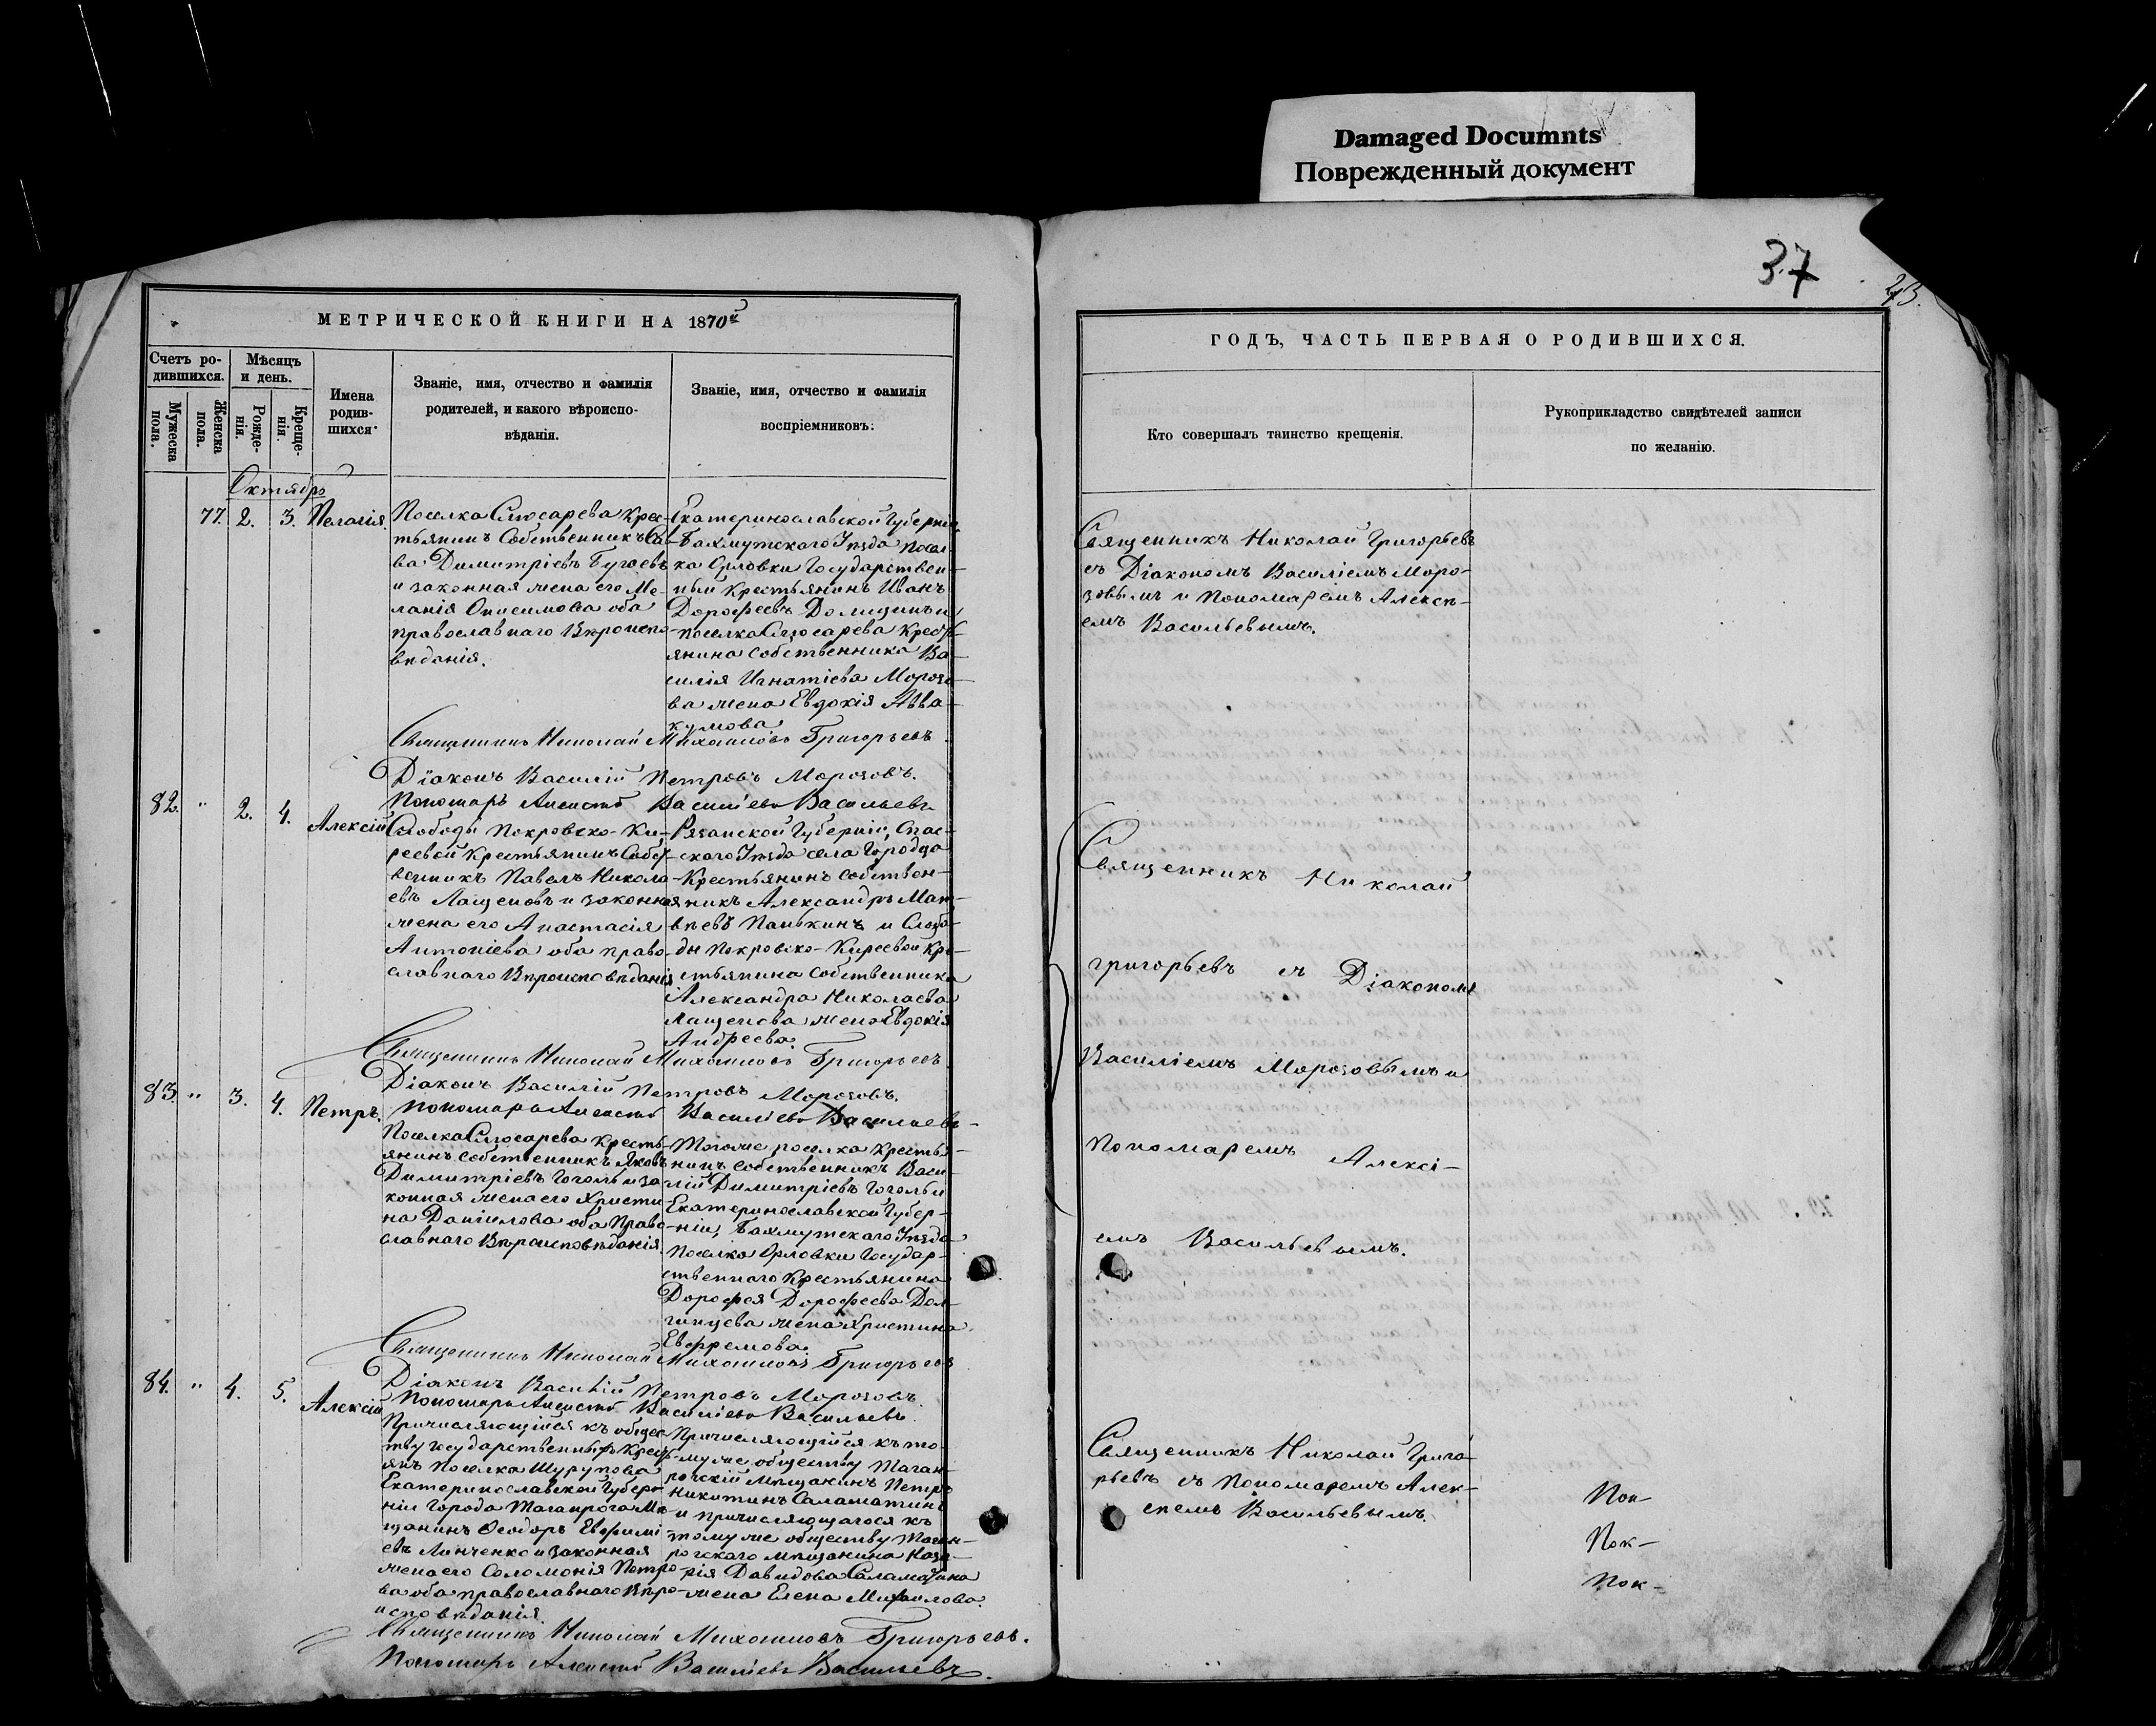 Damaged Documnts
Поврежденный документ
37
МЕТРИЧЕСКОЙ КНИГИ НА 1870й
Счетъ ро-
дившихся.
Мѣсяцъ
и день.
Мужеска
пола.
Женска
пола.
Рожде-
нія.
Креще-
нія.
Имена
родив-
шихся.
Званіе, имя, отчество и фамилія
родителей, и какого вѣроиспо-
вѣданія.
Званіе, имя, отчество и фамилія
воспріемниковъ.
Октябрь
77. 2. 3. Пелагія.
Поселка Слюсарева крес-
тьянинъ Собственникъ Са-
ва Димитріевъ Бугаевъ
и законная жена его Ме-
ланія Онисимова оба
православнаго Вѣроиспо-
вѣданія.
Екатеринославской Губерніи
Бахмутскаго Уѣзда посел-
ка Орловки Государствен-
ный Крестьянинъ Иванъ
Дорофеевъ и
поселка Слюсарева Кресть-
янина собственника Ва-
силія Игнатіева Морозо-
ва жена Евдокія Авва-
кумова.
Священникъ Николай Михаиловъ Григорьевъ
Діаконъ Василій Петровъ Морозовъ.
Пономарь Алексѣй Василіевъ Васильевъ
82. " 2. 4. Алексій
Слободы Покровско-Ки-
реевой Крестьянинъ Собст-
венникъ Павелъ Никола-
евъ Лащеновъ и законная
жена его Анастасія
Антоніева оба право-
славнаго Вѣроисповѣданія
Рязанской Губерніи, Спас-
скаго Уѣзда села Городца
Крестьянинъ собствен-
никъ Александръ Мат-
вѣевъ Панькинъ и Слобо-
ды Покровско-Киреевой Кре-
стьянина собственника
Александра Николаева
Лащенова жена Евдокія
Андреева.
Священникъ Николай Михаиловъ Григорьевъ
Діаконъ Василій Петровъ Морозовъ.
Пономарь Алексѣй Василіевъ Васильевъ
83. " 3. 4. Петръ.
Поселка Слюсарева Кресть-
янинъ собственникъ Яковъ
Димитріевъ Гоголь и за-
конная жена его Христи-
на Даніилова оба Право-
славнаго Вѣроисповѣданія.
Тогоже поселка Крестья-
нинъ собственникъ Васи-
лій Димитріевъ Гоголь и
Екатеринославской Губер-
ніи, Бахмутскаго Уѣзда
поселка Орловки Государ-
ственнаго Крестьянина
Дорофея Дорофеева Дол-
жена Христина
Евфремова.
Священникъ Николай Михаиловъ Григорьевъ
Діаконъ Василій Петровъ Морозовъ.
Пономарь Алексѣй Василіевъ Васильевъ.
84. " 4. 5. Алексій
Причисляющійся къ общес-
тву государственныхъ Крест-
янъ поселка Шурупова
Екатеринославской Губер-
ніи города Таганрога Мѣ-
щанинъ Ѳеодоръ Евфимі-
евъ Линченко и законная
жена его Соломонія Петро-
ва оба православнаго Вѣро-
исповѣданія.
Причисляющійся къ то-
муже обществу Таган-
рогскій Мѣщанинъ Петръ
Никитинъ Саламатинъ
и причисляющагося къ
томуже обществу Таган-
рогскаго мѣщанина
Давидова Саламатина
жена Елена Михаилова.
Священникъ Николай Михаиловъ Григорьевъ.
Пономарь Алексѣй Василіевъ Васильевъ.
ГОДЪ, ЧАСТЬ ПЕРВАЯ О РОДИВШИХСЯ.
Кто совершалъ таинство крещенія.
Рукоприкладство свидѣтелей записи
по желанію.
Священникъ Николай Григорьевъ
съ Діакономъ Василіемъ Моро-
зовымъ и Пономаремъ Алексѣ-
емъ Васильевымъ.
Священникъ Николай
Григорьевъ съ Діакономъ
Василіемъ Морозовымъ и
Пономаремъ Алексі-
емъ Васильевымъ.
Священникъ Николай Григо-
рьевъ съ Пономаремъ Алек-
сѣемъ Васильевымъ.